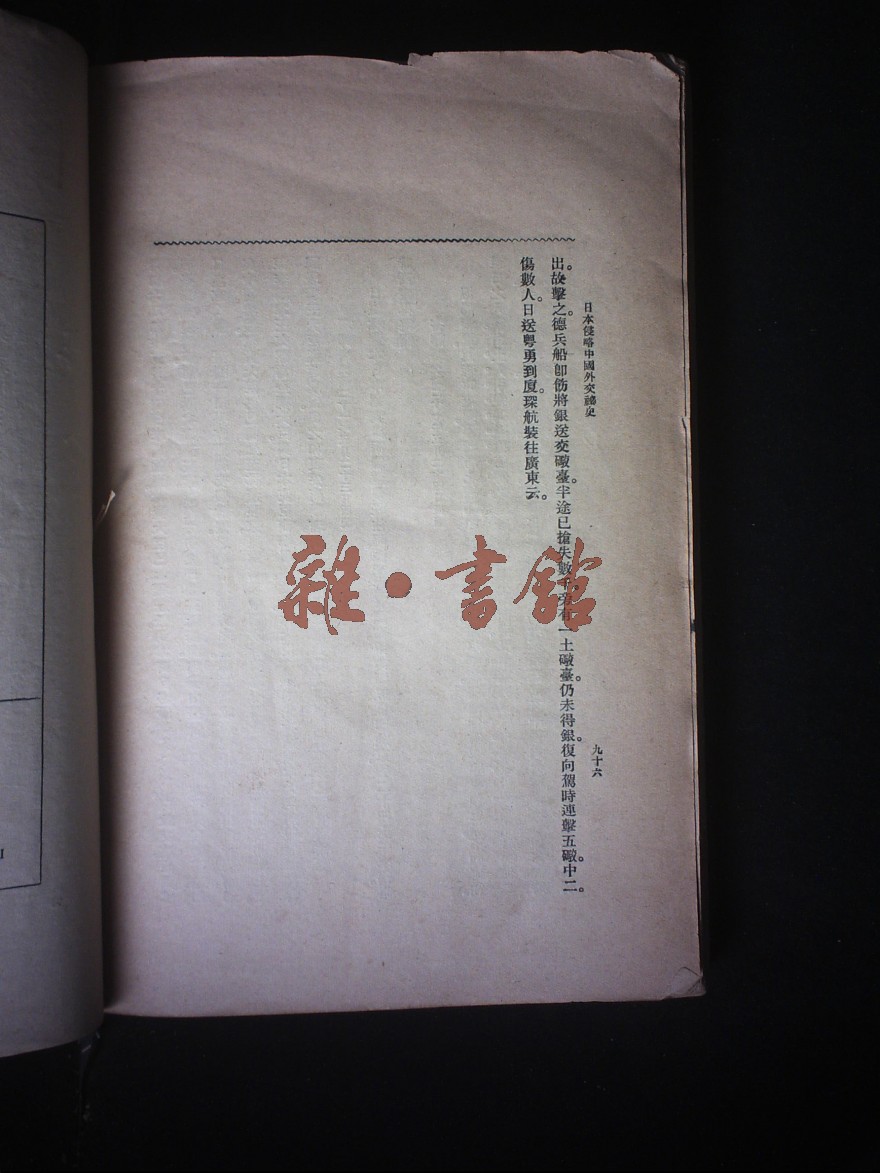 日本侵略中國外交祕史
九十六
出。故擊之。德兵船卽飭將銀送交礮臺。半途已搶失數千。旁有一土礮臺。仍未得銀。復向駕時連擊五礮。中二。
傷數人。日送粤勇到廈。琛航裝往廣東云。
雜・書館